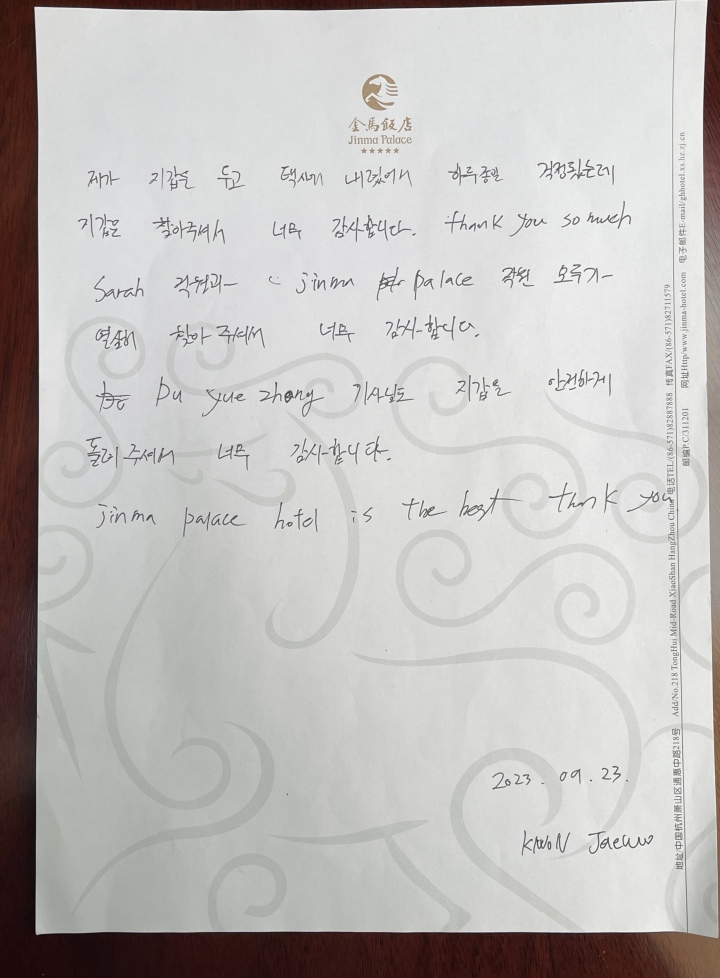 金馬飯店
Jinma Palace
★★★★★
제가 지갑을 두고 택시에 내렸어서 하루종일 걱정됬는데
지갑을 찾아주셔서 너무 감사합니다. thank you so much
Sarah 직원과 jinma palace 직원 모두가
열심히 찾아 주셔서 너무 감사합니다.
Du yue zhong 기사님도 지갑을 안전하게
돌려 주셔서 너무 감사합니다.
jinma palace hotel is the best thank you
2023. 09. 23.
KWON Jaewoo
地址/中国杭州萧山区通惠中路218号 Add/No.218 TongHui Mid-Road XiaoShan HangZhou China 电话TEL/(86-571)82887888 传真FAX/(86-571)82711579
邮编P.C/311201 网址Http/www.jinma-hotel.com 电子邮件E-mail/ghhotel.xs.hz.zj.cn